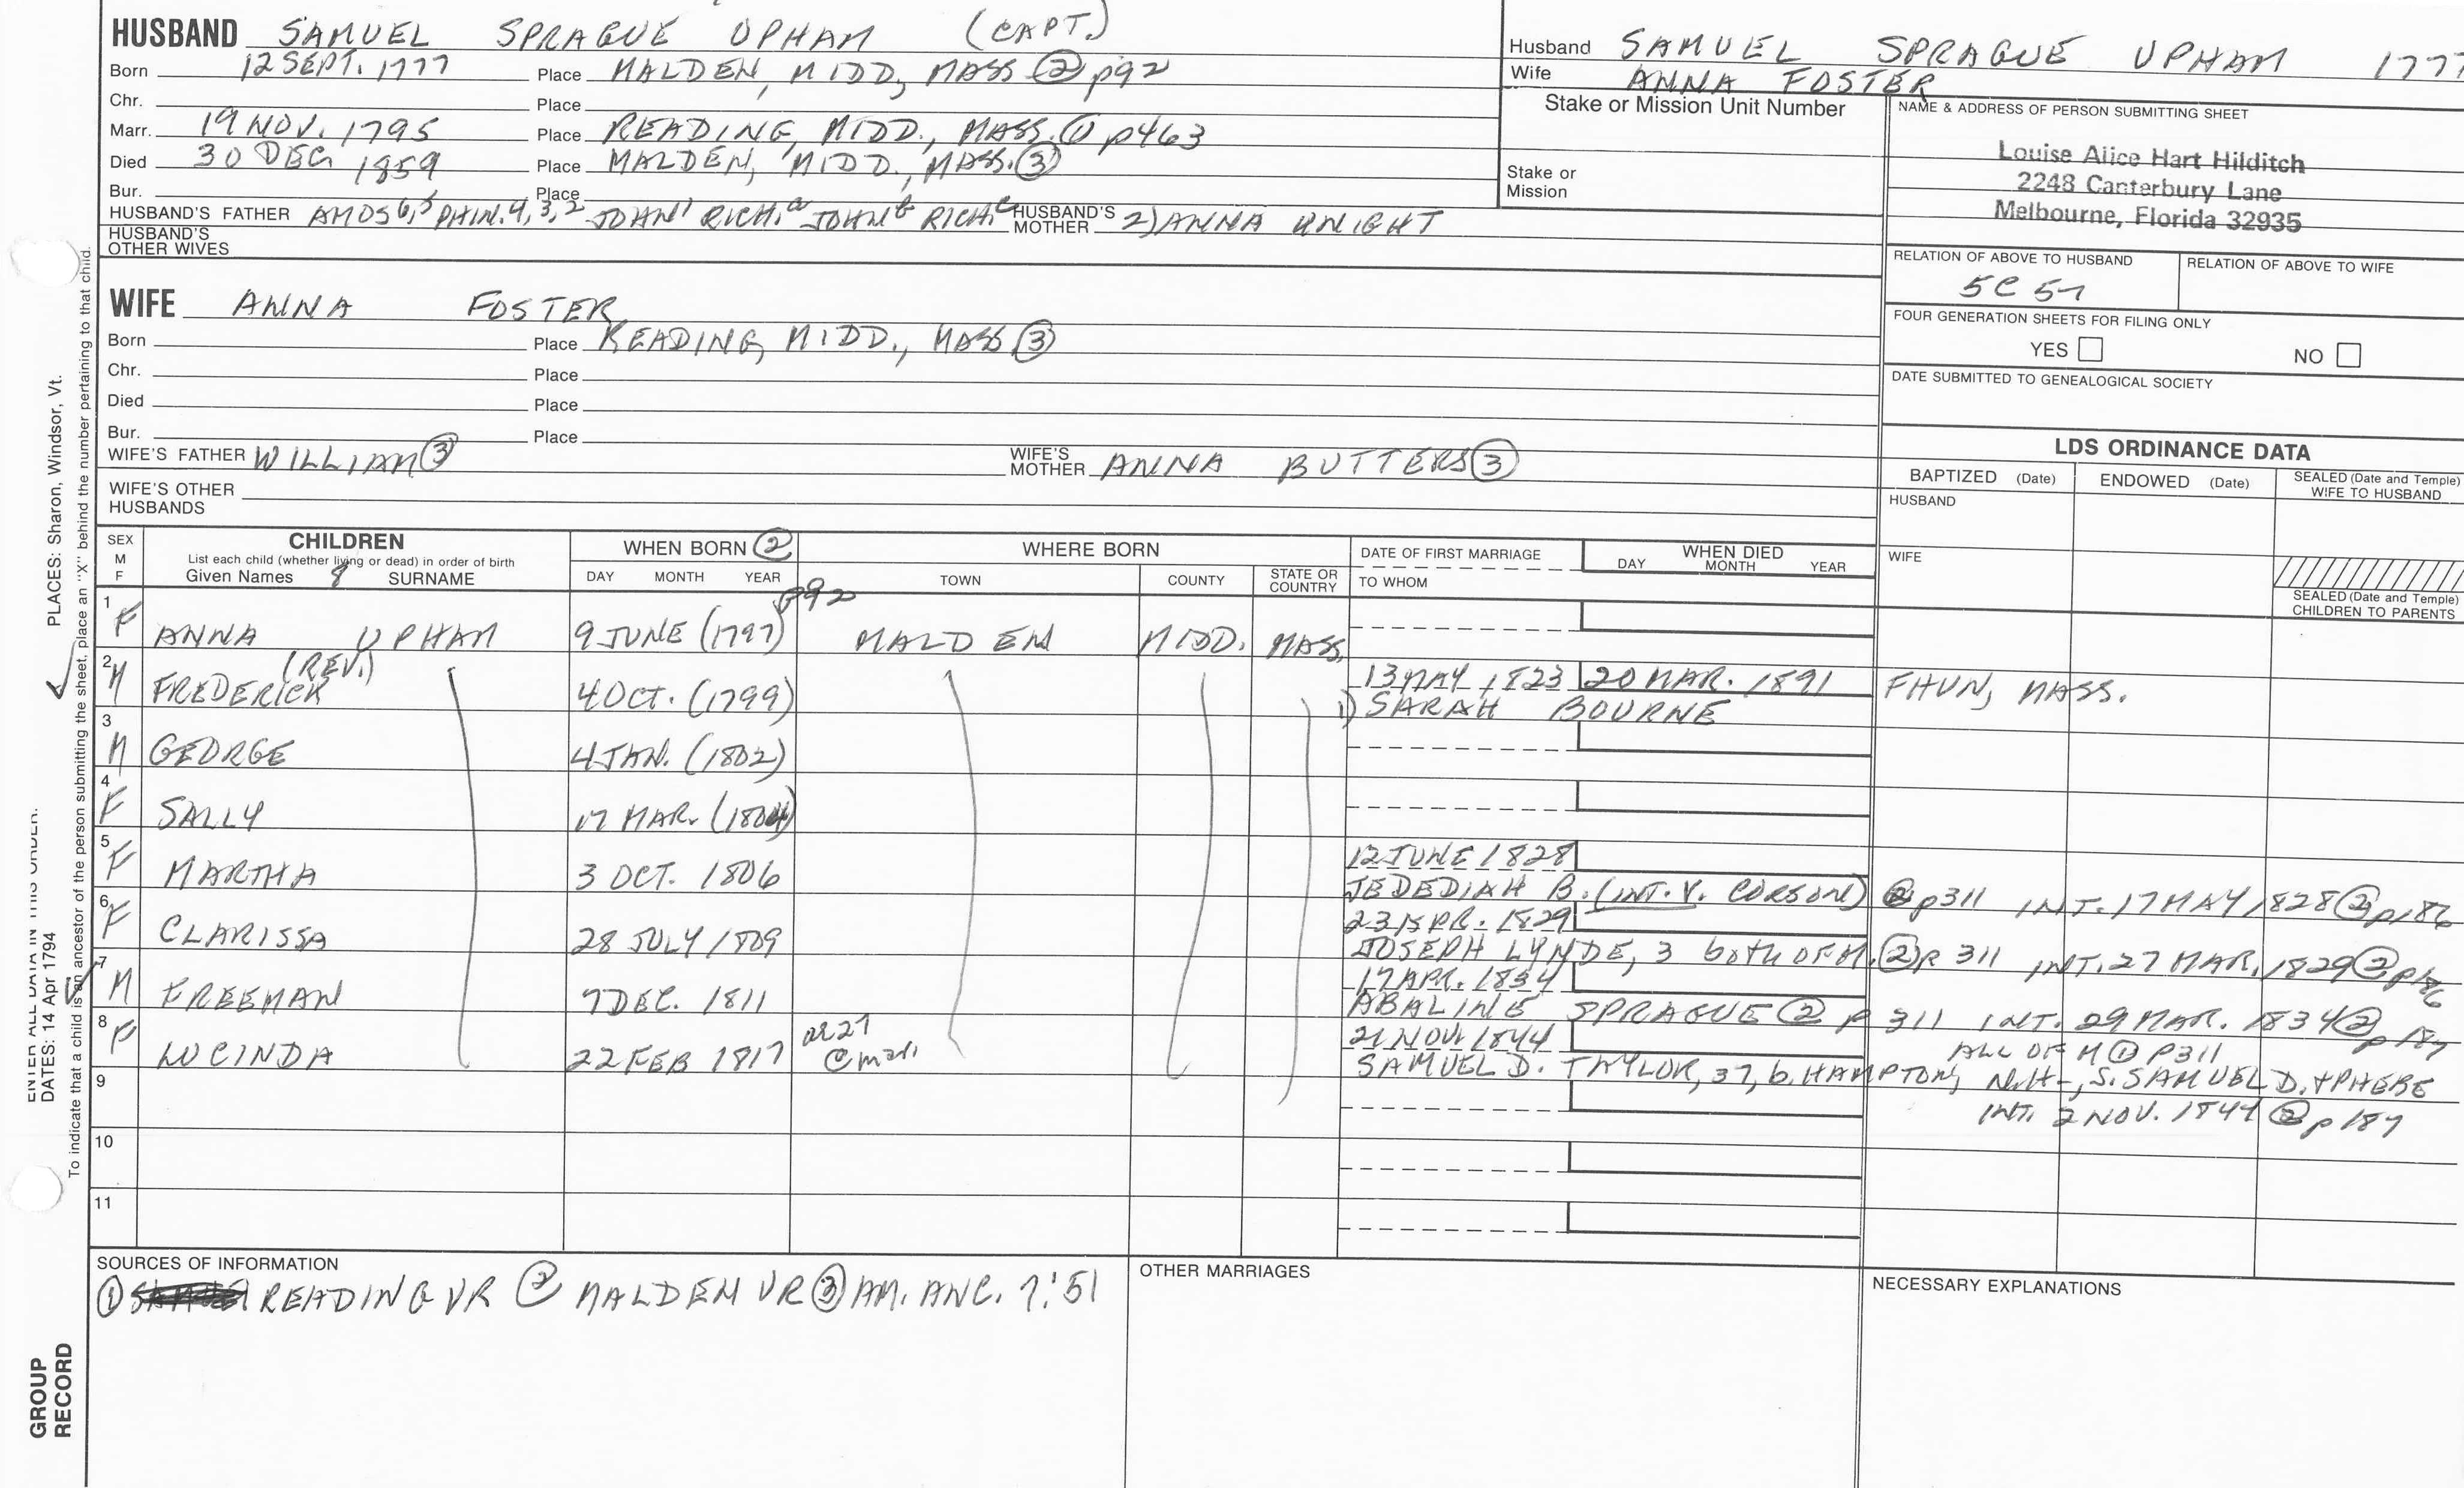 HUSBAND SAMUEL SPRAGUE UPHAM (CAPT.)
Born 12 SEPT. 1777 Place MALDEN, MIDD, MASS ② p92
Chr. Place
Marr. 19 NOV. 1795 Place READING, MIDD., MASS. ① p463
Died 30 DEC 1859 Place MALDEN, MIDD., MASS. ③
Bur. Place
HUSBAND'S FATHER AMOS 6,5 PHIN. 4,3,2 JOHN1 RICH.a JOHNb RICH.c HUSBAND'S MOTHER 2) ANNA KNIGHT
HUSBAND'S OTHER WIVES
Husband SAMUEL SPRAGUE UPHAM 1777
Wife ANNA FOSTER
Stake or Mission Unit Number
Stake or Mission
NAME & ADDRESS OF PERSON SUBMITTING SHEET
Louise Alice Hart Hilditch
2248 Canterbury Lane
Melbourne, Florida 32935
RELATION OF ABOVE TO HUSBAND RELATION OF ABOVE TO WIFE
5C 5
FOUR GENERATION SHEETS FOR FILING ONLY
YES NO
DATE SUBMITTED TO GENEALOGICAL SOCIETY
WIFE ANNA FOSTER
Born Place READING, MIDD., MASS ③
Chr. Place
Died Place
Bur. Place
WIFE'S FATHER WILLIAM ③ WIFE'S MOTHER ANNA BUTTERS ③
WIFE'S OTHER HUSBANDS
LDS ORDINANCE DATA
BAPTIZED (Date) ENDOWED (Date) SEALED (Date and Temple) WIFE TO HUSBAND
HUSBAND
WIFE
SEALED (Date and Temple) CHILDREN TO PARENTS
SEX M F CHILDREN WHEN BORN ② WHERE BORN DATE OF FIRST MARRIAGE WHEN DIED
List each child (whether living or dead) in order of birth
Given Names 8 SURNAME DAY MONTH YEAR TOWN COUNTY STATE OR COUNTRY TO WHOM DAY MONTH YEAR
p92
1 F ANNA UPHAM 9 JUNE (1797) MALDEN MIDD. MASS.
2 M FREDERICK (REV.) 4 OCT. (1799) 13 MAY 1823 20 MAR. 1891 MASS.
1) SARAH BOURNE
3 M GEORGE 4 JAN. (1802)
4 F SALLY 17 MAR. (1804)
5 F MARTHA 3 OCT. 1806 12 JUNE 1828
JEDEDIAH B. (INT. V. CORSON) ② p311 INT. 17 MAY 1828 ② p186
6 F CLARISSA 28 JULY 1809 23 APR. 1829
JOSEPH LYNDE, 3 both OF M. ② p 311 INT. 27 MAR. 1829 ② p186
7 M FREEMAN 7 DEC. 1811 17 APR. 1834
ABALINE SPRAGUE ② p 311 INT. 29 MAR. 1834 ② p 187
8 F LUCINDA 22 FEB 1817 ae 27 @ mar. 21 NOV. 1844 ALL OF M ① P311
SAMUEL D. TAYLOR, 37, b. HAMPTON, N.H., S. SAMUEL D. + PHEBE
INT. 2 NOV. 1844 ② p187
9
10
11
SOURCES OF INFORMATION
① READING VR ② MALDEN VR ③ AM. ANC. 7:51
OTHER MARRIAGES
NECESSARY EXPLANATIONS
PLACES: Sharon, Windsor, Vt.
To indicate that a child is an ancestor of the person submitting the sheet, place an "X" behind the number pertaining to that child.
ENTER ALL DATA IN THIS ORDER:
DATES: 14 Apr 1794
GROUP
RECORD